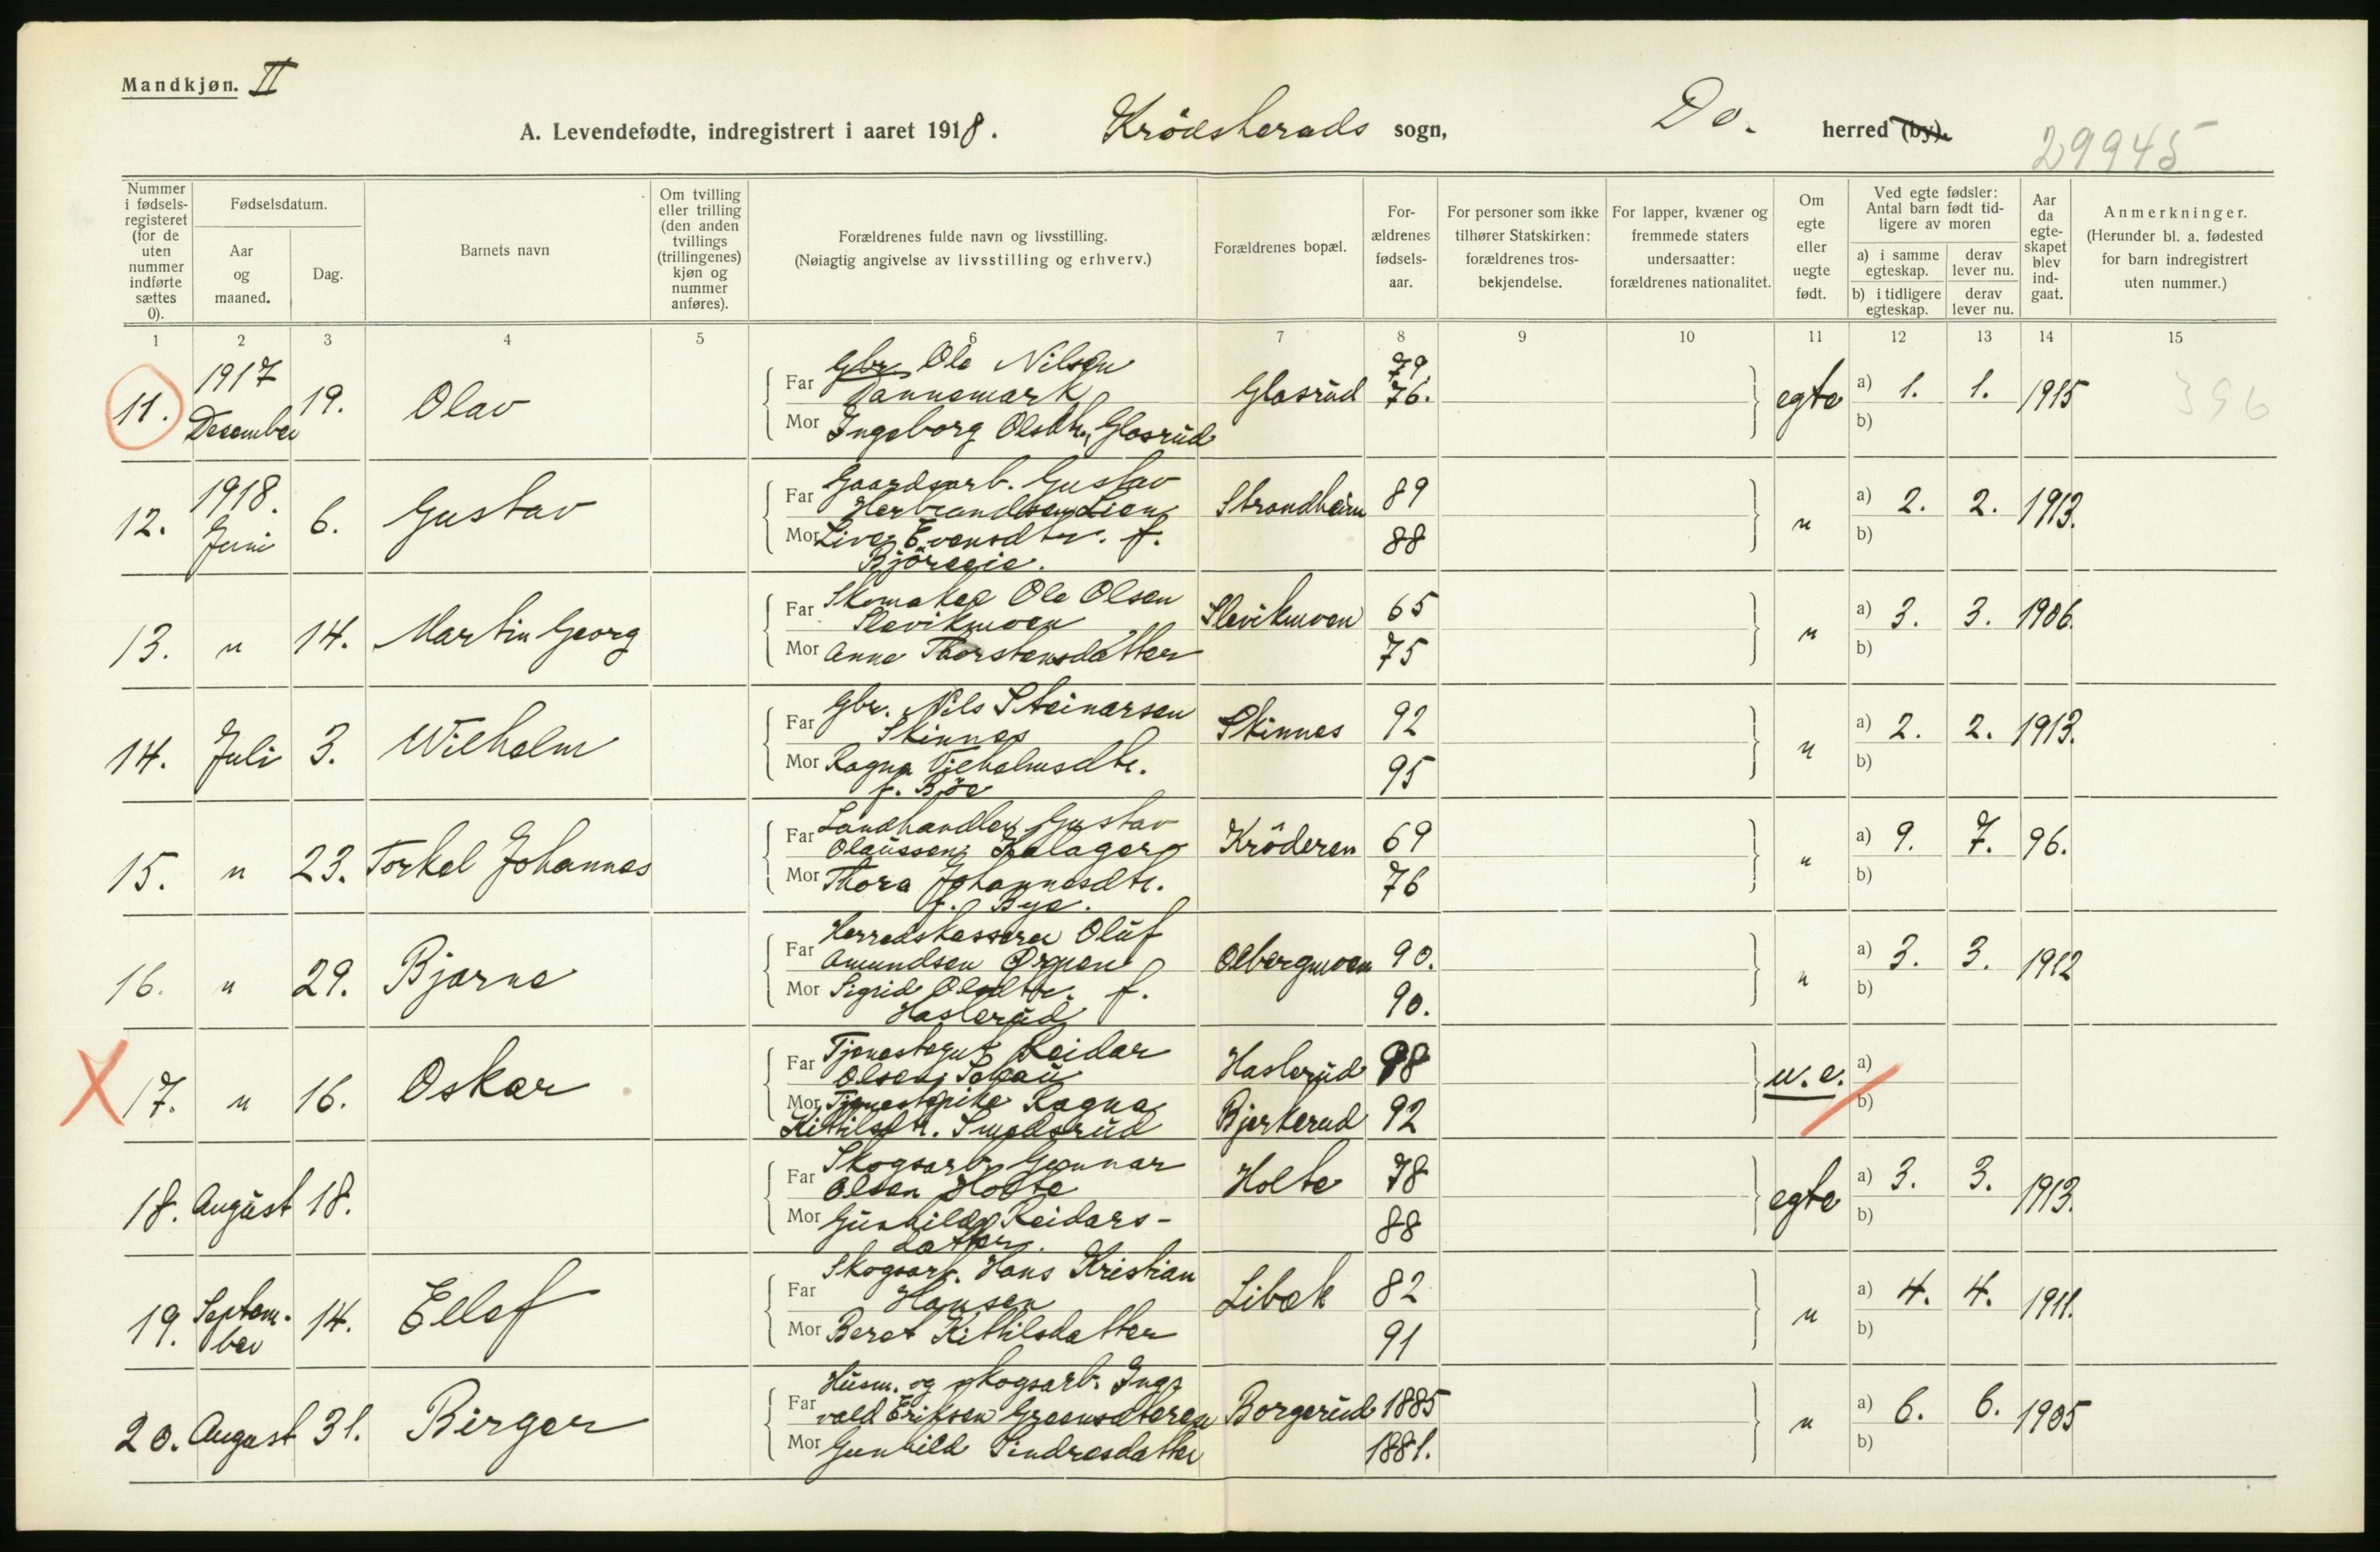 Mandkjøn. II
A. Levendefødte, indregistrert i aaret 1918. Krödsherads sogn, Do. herred (by).
29945
Nummer i fødsels-registeret (for de uten nummer indførte sættes 0).
Fødselsdatum.
Aar og maaned.
Dag.
Barnets navn
Om tvilling eller trilling (den anden tvillings (trillingenes) kjøn og nummer anføres).
Forældrenes fulde navn og livsstilling.
(Nøiagtig angivelse av livsstilling og erhverv.)
Forældrenes bopæl.
For-ældrenes fødsels-aar.
For personer som ikke tilhører Statskirken: forældrenes tros-bekjendelse.
For lapper, kvæner og fremmede staters undersaatter: forældrenes nationalitet.
Om egte eller uegte født.
Ved egte fødsler: Antal barn født tid-ligere av moren
a) i samme egteskap.
derav lever nu.
b) i tidligere egteskap.
derav lever nu.
Aar da egte-skapet blev ind-gaat.
Anmerkninger.
(Herunder bl. a. fødested for barn indregistrert uten nummer.)
1 2 3 4 5 6 7 8 9 10 11 12 13 14 15
11. 1917 Desember 19. Olav
Far Gbr. Ole Nilsen Dannemark Glasrud 79.
Mor Ingeborg Olsdtr. Glasrud 76.
egte a) 1. 1. 1915 396
b)
12. 1918. Juni 6. Gustav
Far Gaardsarb. Gustav Herbrandsen Lien Strandheim 89
Mor Live Evensdtr. f. Björegie. 88
" a) 2. 2. 1913.
b)
13. " 14. Martin Georg
Far Skomaker Ole Olsen Slevikmoen Slevikmoen 65
Mor Anne Thorstensdatter 75
" a) 3. 3. 1906.
b)
14. Juli 3. Wilhelm
Far Gbr. Nils Steinarsen Skinnes Skinnes 92
Mor Ragna Vilhelmsdtr. f. Bjöe 95
" a) 2. 2. 1913.
b)
15. " 23. Torkel Johannes
Far Landhandler Gustav Olaussen Kalager Kröderen 69
Mor Thora Johannesdtr. f. Bye. 76
" a) 9. 7. 96.
b)
16. " 29. Bjarne
Far Herredskasserer Oluf Amundsen Ørpen Olbergmoen 90.
Mor Sigrid Olsdtr. f. Haslerud 90.
" a) 3. 3. 1912
b)
X 17. " 16. Oskar
Far Tjenestegut Reidar Olsen Haslerud 98
Mor Tjenestepike Ragna Kittilsdtr. Smedsrud Bjerkerud 92
u.e. a)
b)
18. August 18.
Far Skogsarb. Gunnar Olsen Holte Holte 78
Mor Gunhild Reidars-datter. 88
egte a) 3. 3. 1913.
b)
19. Septem-ber 14. Ellef
Far Skogsarb. Hans Kristian Hansen Libæk 82
Mor Beret Kittilsdatter 91
" a) 4. 4. 1911.
b)
20. August 31. Birger
Far Husm. og skogsarb. Ing-vald Eriksen Borgerud 1885
Mor Gunhild Sindresdatter 1881.
" a) 6. 6. 1905
b)